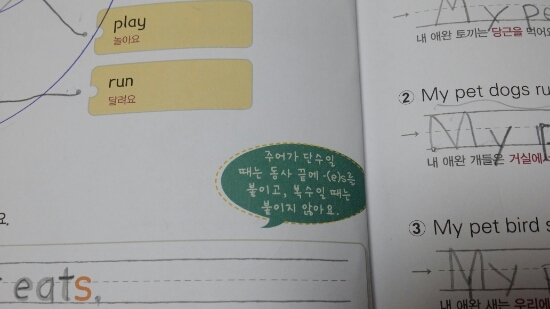 play
놀아요
run
달려요
주어가 단수일
때는 동사 끝에 -(e)s를
붙이고, 복수일 때는
붙이지 않아요.
요.
eats.
→ My pe
내 애완 토끼는 당근을 먹어요
② My pet dogs ru
→ My p
내 애완 개들은 거실에서
③ My pet bird s
→ My p
내 애완 새는 우리에